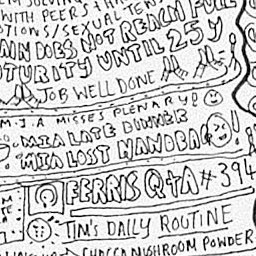 WITH PEERS +
/SEXUAL TENS
DOES NOT REACH FULL
UNTIL 25 Y
JOB WELL DONE
M.J.A MISSES PLENARY
MIA LATE DINNER
MIA LOST HANDBAG!
FERRIS Q+A #394
TIM'S DAILY ROUTINE
CHAGGA MUSHROOM POWDER